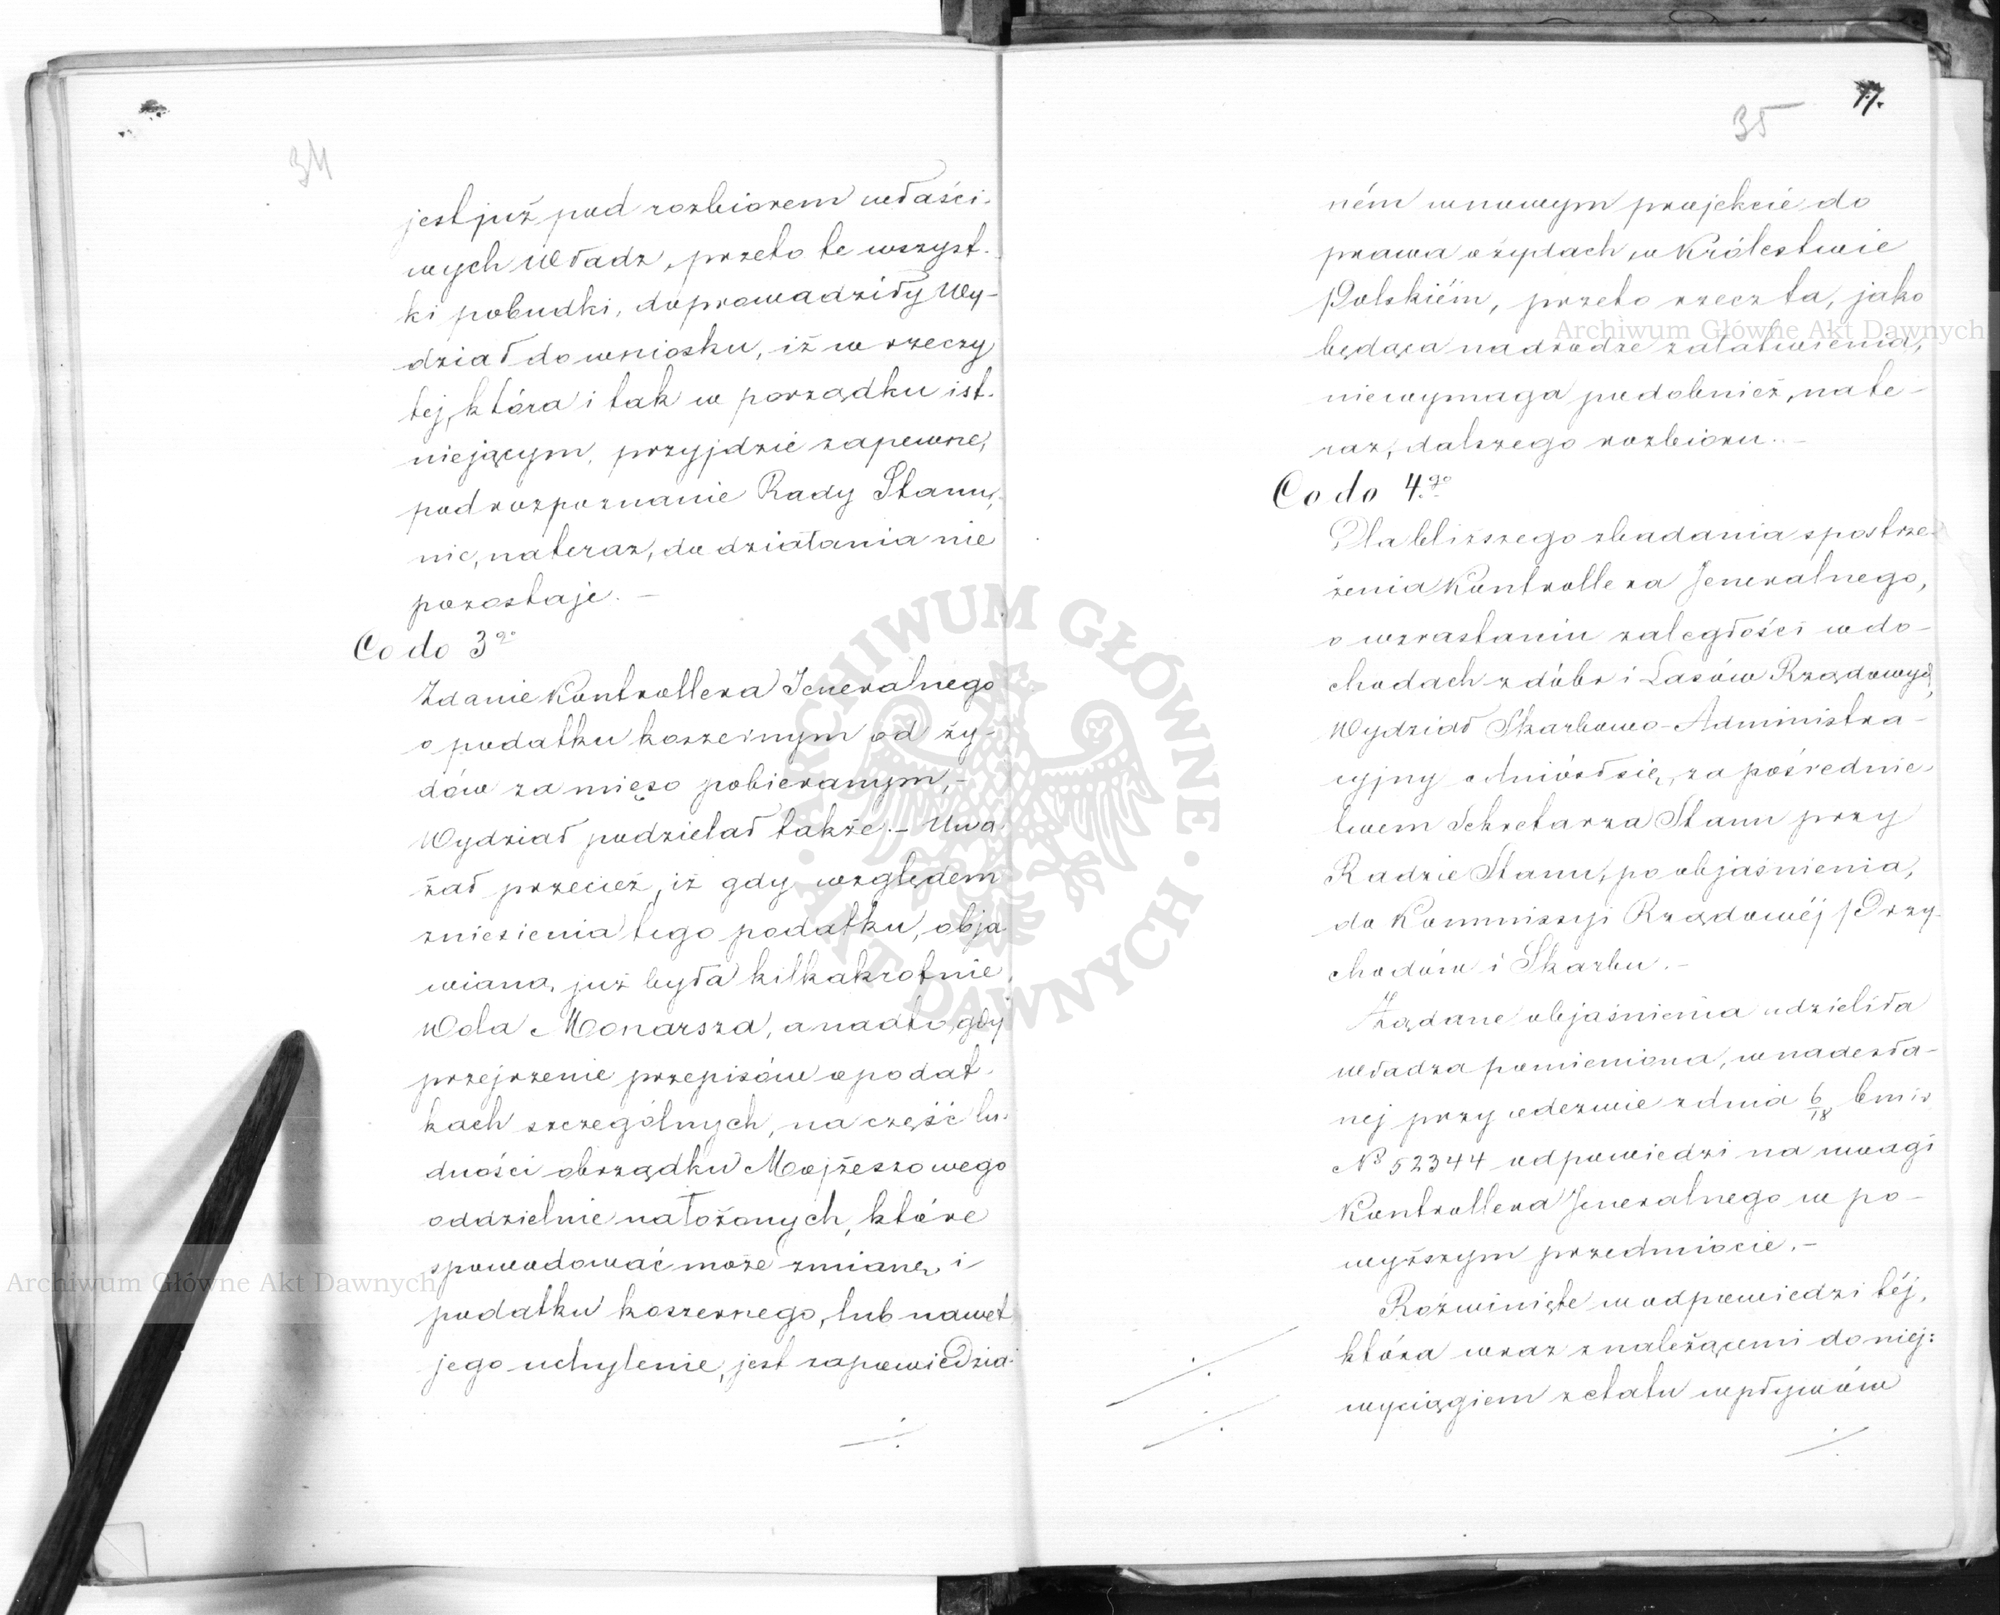 34
jest już pod rozbiorem właści-
wych Władz, przeto te wszyst-
ki pobudki, doprowadziły Wy-
dział do wniosku, iż w rzeczy
tej, która i tak w porządku ist-
niejącym, przyjdzie zapewne,
pod rozpoznanie Rady Stanu,
nic, nateraz, do działania nie
pozostaje. –
Co do 3go
Zdanie Kontrollera Jeneralnego
o podatku koszernym od ży-
dów za mięso pobieranym, –
Wydział podzielał także. – Uwa-
żał przecież, iż gdy względem
zniesienia tego podatku, obja-
wianą, już była kilkakrotnie,
Wola Monarsza, a nadto, gdy
przejrzenie przepisów o podat-
kach szczególnych, na część lu-
dności obrządku Mojżeszowego
oddzielnie nałożonych, które
spowodować może zmianę, i
podatku koszernego, lub nawet
jego uchylenie, jest zapowiedzia-
35
17.
ném w nowym projekcie do
prawa o żydach w Królestwie
Polskiém, przeto rzecz ta, jako
będąca na drodze załatwienia,
niewymaga podobnież, nate-
raz, dalszego rozbioru. –
Co do 4go
Dla bliższego zbadania spostrze-
żenia Kontrollera Jeneralnego,
o wzrastaniu zaległości w do-
chodach z dóbr i Lasów Rządowych,
Wydział Skarbowo-Administra-
cyjny odniósł się, za pośrednic-
twem Sekretarza Stanu przy
Radzie Stanu, po objaśnienia,
do Kommissyi Rządowéj Przy-
chodów i Skarbu. –
Żądane objaśnienia udzieliła
władza pomieniona, w nadesła-
nej przy odezwie z dnia 6/18 bm i r
No 52344 odpowiedzi na uwagi
Kontrollera Jeneralnego w po-
wyższym przedmiocie. –
Rozwinięte w odpowiedzi téj,
która wraz z należącemi do niej:
wyciągiem z etatu wpływów
Archiwum Główne Akt Dawnych
Archiwum Główne Akt Dawnych
ARCHIWUM GŁÓWNE
AKT DAWNYCH